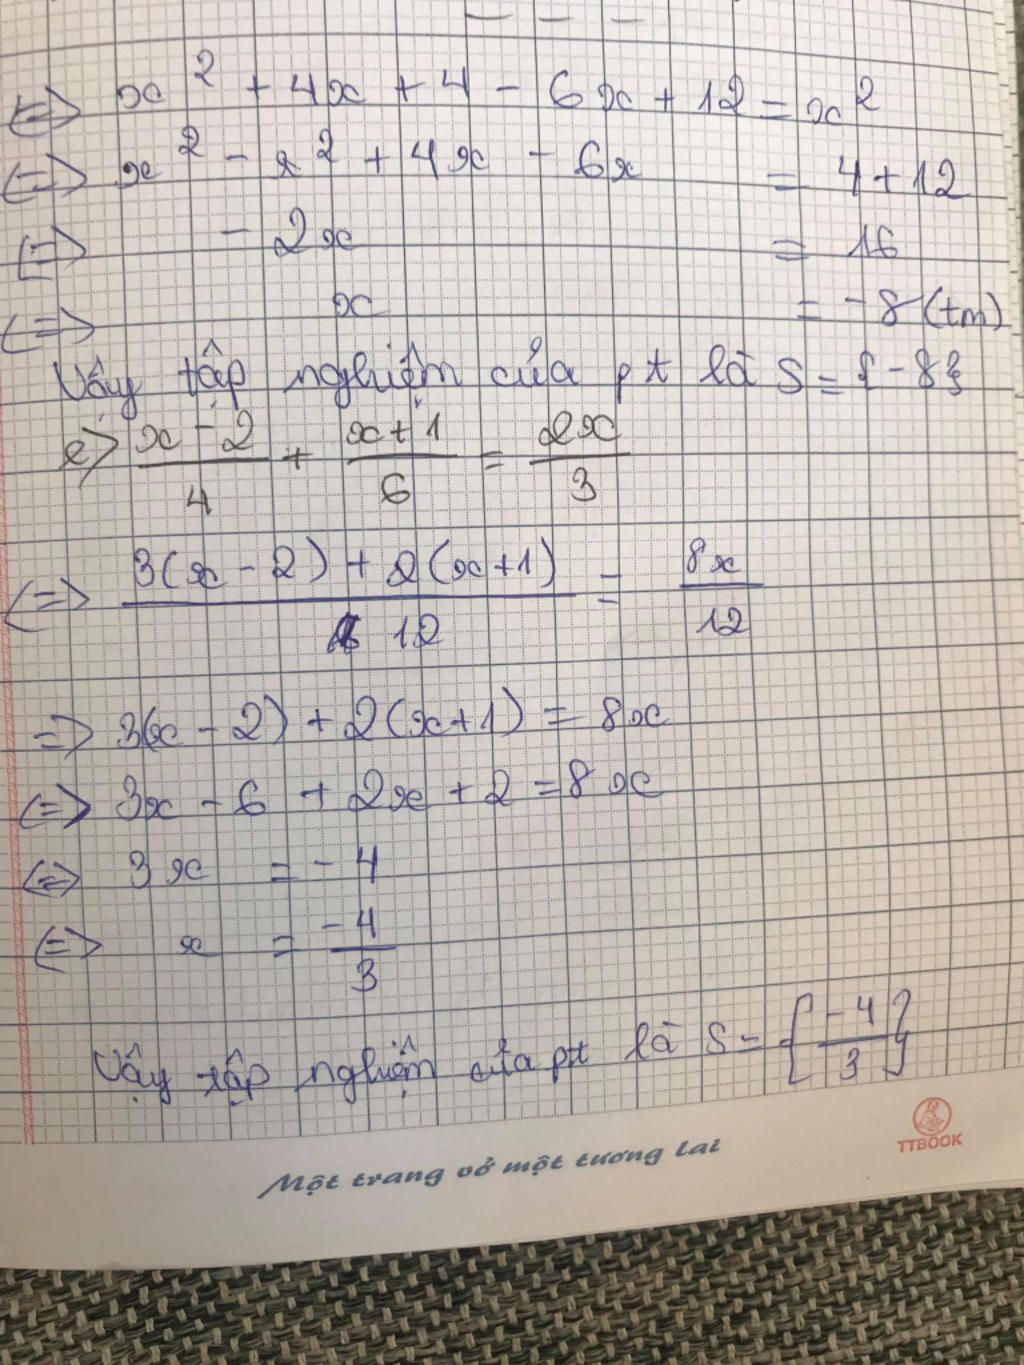 <=> x² + 4x + 4 - 6x + 12 = x²
<=> x² - x² + 4x - 6x = 4 + 12
<=> - 2x = 16
<=> x = -8 (tm)
Vậy tập nghiệm của pt là S = {-8}
e) x - 2 / 4 + x + 1 / 6 = 2x / 3
<=> 3(x - 2) + 2(x + 1) / 12 = 8x / 12
=> 3(x - 2) + 2(x + 1) = 8x
<=> 3x - 6 + 2x + 2 = 8x
<=> 3x = - 4
<=> x = -4 / 3
Vậy tập nghiệm của pt là S = {-4 / 3}
TTBOOK
Một trang vở một tương lai